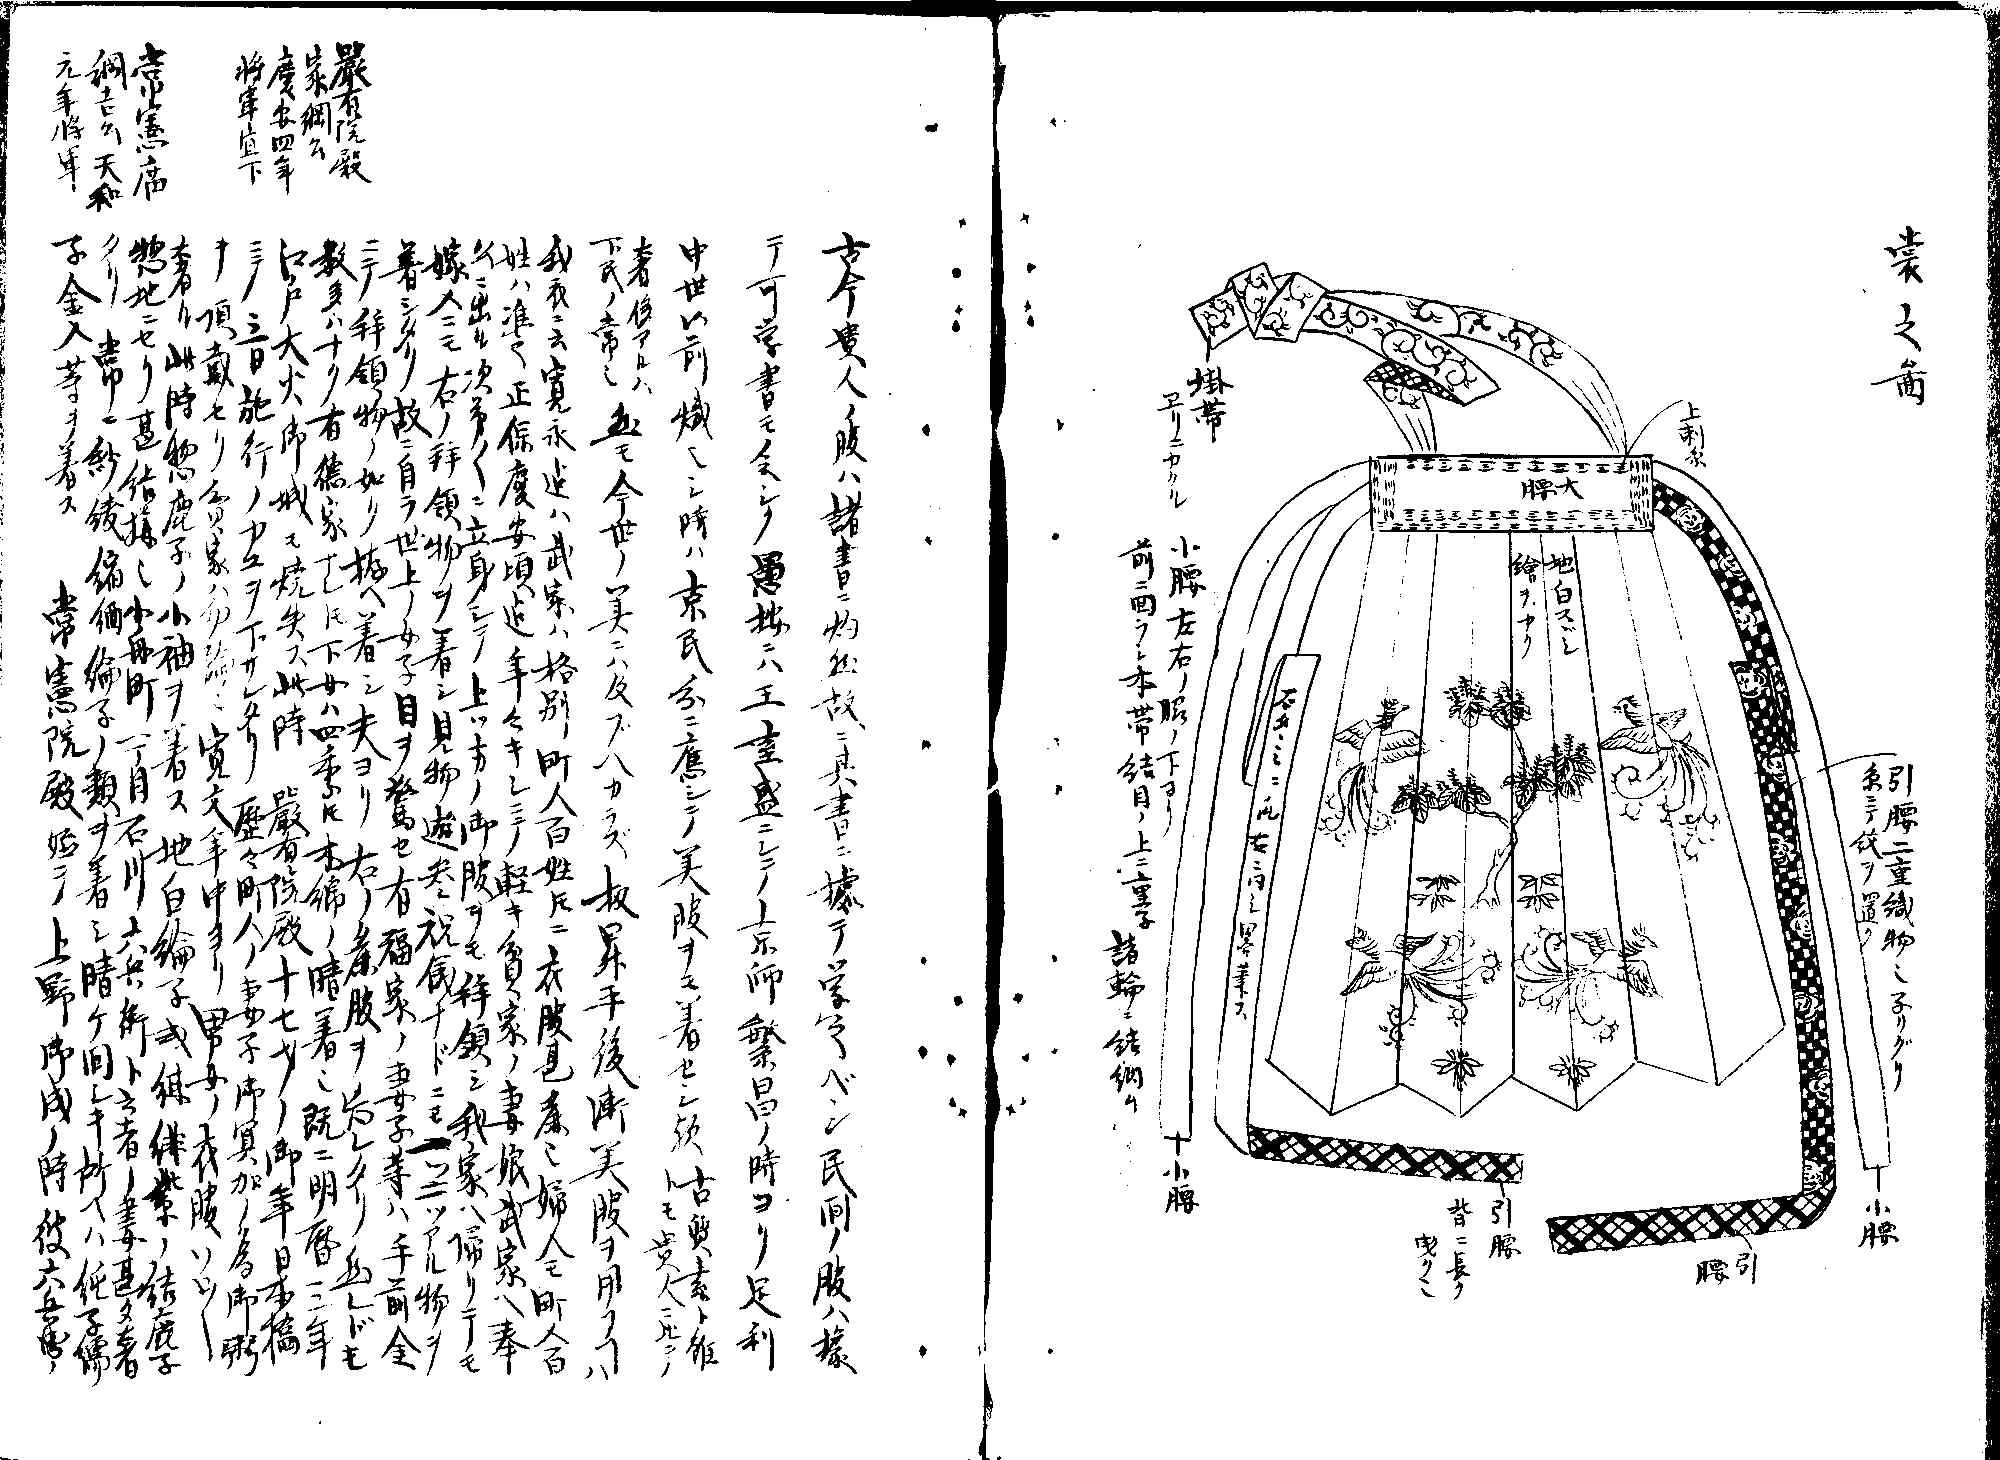 裳之啚
掛帯
ヱリニカクル
上刺糸
大腰
地白スヾシ
繪ヲカク
小腰左右ノ脇ノ下ヨリ
前ニ囬ラシ本帯結目ノ上ニ重子
諸輪ニ結納ム
引腰二重織物也子リグリ
糸ニテ紋ヲ置ク
小腰
小腰
引腰
背ニ長ク
曳ク也
引腰
古今貴人ノ服ハ諸書ニ灼然故ニ其書ニ據テ学ブベシ民間ノ服ハ據
テ可学書モ全シ愚按ニハ王室盛ニシテ京師繁昌ノ時ヨリ足利
中世以前熾ニシ時ハ京民分ニ應シテ美服ヲモ着セシ欤
古質素ト雖
トモ貴人ニ比テ
奢侈アルハ
下民ノ常也
然モ今世ノ美ニハ及ブヘカラズ
昇平後漸美服ヲ用フコハ
我衣ニ云寛永迠ハ武家ハ格別町人百姓ニ衣服甚麁也婦人モ町人百
姓ハ准之正保慶安頃迠年々キシミテ軽キ貧家ノ妻娘武家ヘ奉
公ニ出ル次第〱ニ立身シテ上ツ方ノ御服ヲモ拝領シ我家ヘ帰リテモ
嫁人ニモ右ノ拝領物ヲ着シ見物遊参祝儀ナドニモ一ツ二ツアル物ヲ
着シタリ故ニ自ラ世上ノ女子目ヲ驚セ有福家ノ妻子等ハ手前金
ニテ拝領物ノ如ク拵ヘ着シ夫ヨリ右ノ衣服ヲ為シタリ然レドモ
数多ハナク有德家ナレ𪜈下女ハ四季𪜈木綿ノ晴着也既ニ明暦三年
江戸大火御城モ焼失ス此時
嚴有院殿十七才ノ御年日本橋
ニテ三日施行ノカユヲ下サレタリ歴々町人ノ妻子御冥加ノ為御粥
ヲ頂戴セリ貧家ハ勿論也寛文年中ヨリ男女ノ衣服ソロ〱
奢リ此時惣鹿子ノ小袖ヲ着ス地白綸子或緋緋紫ノ結鹿子
惣地ニセリ甚結構也小舟町一丁目石川六兵衛ト云者ノ妻甚タ奢
タリ常ニ紗綾縮緬綸子ノ類ヲ着シ晴ケ間シキ所ヘハ純子繻
子金入等ヲ着ス
常憲院殿始テ上野御成ノ時彼六兵衛ノ
嚴有院殿
家綱公
慶安四年
将軍宣下
常憲廟
綱吉公天和
元年将軍